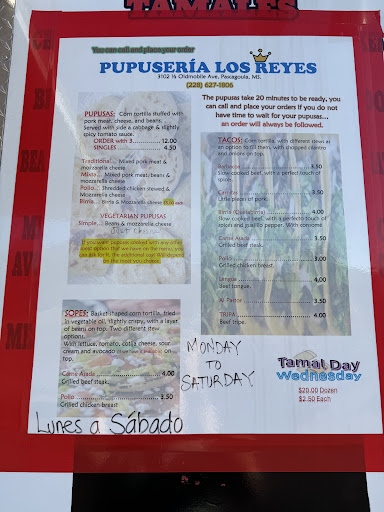 TAMALES
You can call and place your order
PUPUSERÍA LOS REYES
3102 ½ Oldmobile Ave, Pascagoula, MS.
(228) 627-1806
The pupusas take 20 minutes to be ready, you
can call and place your orders if you do not
have time to wait for your pupusas...
an order will always be followed.
PUPUSAS: Corn tortilla stuffed with
pork meat, cheese, and beans.
Served with a side a cabbage & slightly
spicy tomato sauce.
ORDER with 3 12.00
SINGLES 4.50
Traditional... Mixed pork meat &
mozzarella cheese
Mixta... Mixed pork meat, beans &
mozzarella cheese
Pollo... Shredded chicken stewed &
Mozzarella cheese
Birria... Birria & Mozzarella cheese
VEGETARIAN PUPUSAS
Simple... Beans & mozzarella cheese
If you want pupusas cooked with any other
meat option that we have on the menu, you
can ask for it, the additional cost will depend
on the meat you choose
TACOS: Corn tortilla, with different meats as
an option to fill them, with chopped cilantro
and onions on top.
3.50
Slow cooked beef, with a perfect touch of
spices.
Carnitas 3.50
Little pieces of pork.
Birria 4.00
Slow cooked beef, with a perfect touch of
spices and guajillo pepper. With consome
Carne Asada 3.50
Grilled beef steak.
Pollo 3.50
Grilled chicken breast.
Lengua 4.00
Beef tongue.
Al Pastor 3.50
TRIPA 4.00
Beef tripe.
SOPES: Basket-shaped corn tortilla, fried
in vegetable oil, slightly crispy, with a layer
of beans on top. Two different stew
options.
With lettuce, tomato, cotija cheese, sour
cream and avocado on
top.
Carne Asade 4.00
Grilled beef steak.
Pollo 3.50
Grilled chicken breast
MONDAY
TO
SATURDAY
Tamal Day
Wednesday
$20.00 Dozen
$2.50 Each
Lunes a Sábado